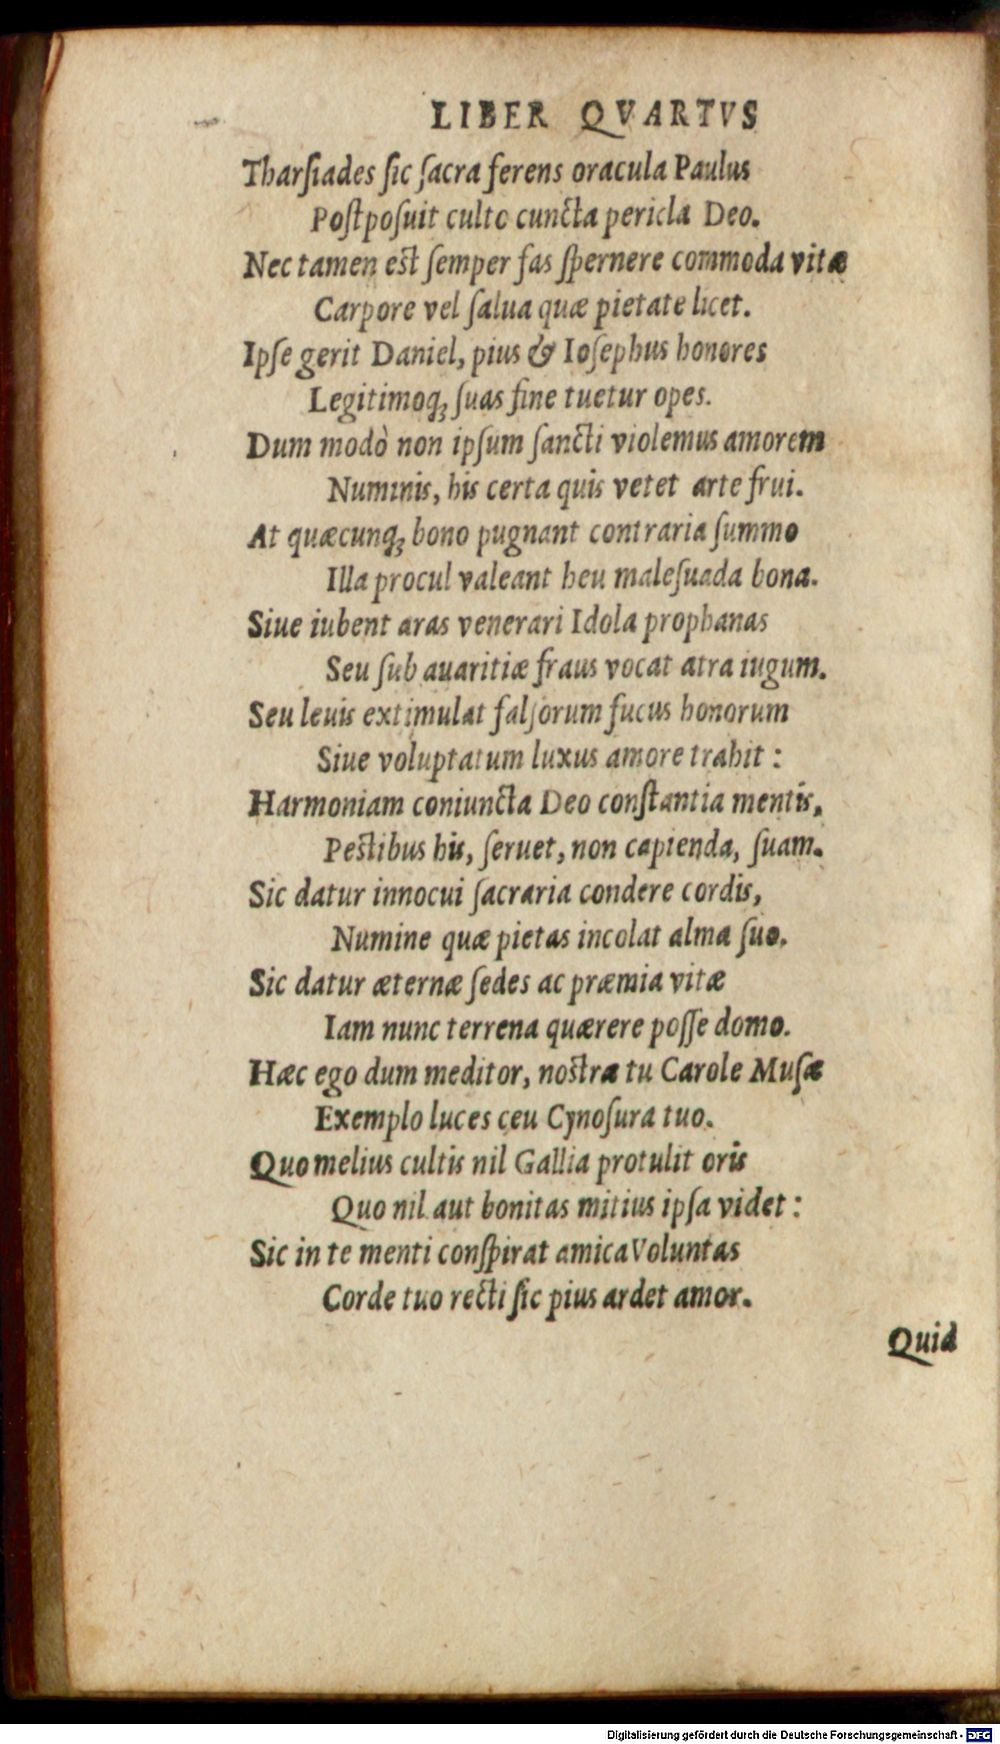 LIBER QVARTVS
Tharſiades ſic ſacra ferens oracula Paulus
Poſtpoſuit culto cuncta pericla Deo.
Nec tamen eſt ſemper fas ſpernere commoda vitæ
Carpore vel ſalua quæ pietate licet.
Ipſe gerit Daniel, pius & Ioſephus honores
Legitimoq́; ſuas fine tuetur opes.
Dum modò non ipſum ſancti violemus amorem
Numinis, his certa quis vetet arte frui.
At quæcunq́; bono pugnant contraria ſummo
Illa procul valeant heu maleſuada bona.
Siue iubent aras venerari Idola prophanas
Seu ſub auaritiæ fraus vocat atra iugum.
Seu leuis extimulat falſorum fucus honorum
Siue voluptatum luxus amore trahit:
Harmoniam coniuncta Deo conſtantia mentis,
Peſtibus his, ſeruet, non capienda, ſuam.
Sic datur innocui ſacraria condere cordis,
Numine quæ pietas incolat alma ſuo.
Sic datur æternæ ſedes ac præmia vitæ
Iam nunc terrena quærere poſſe domo.
Hæc ego dum meditor, noſtræ tu Carole Muſæ
Exemplo luces ceu Cynoſura tuo.
Quo melius cultis nil Gallia protulit oris
Quo nil aut bonitas mitius ipſa videt:
Sic in te menti conſpirat amica Voluntas
Corde tuo recti ſic pius ardet amor.
Quid
Digitalisierung gefördert durch die Deutsche Forschungsgemeinschaft - DFG